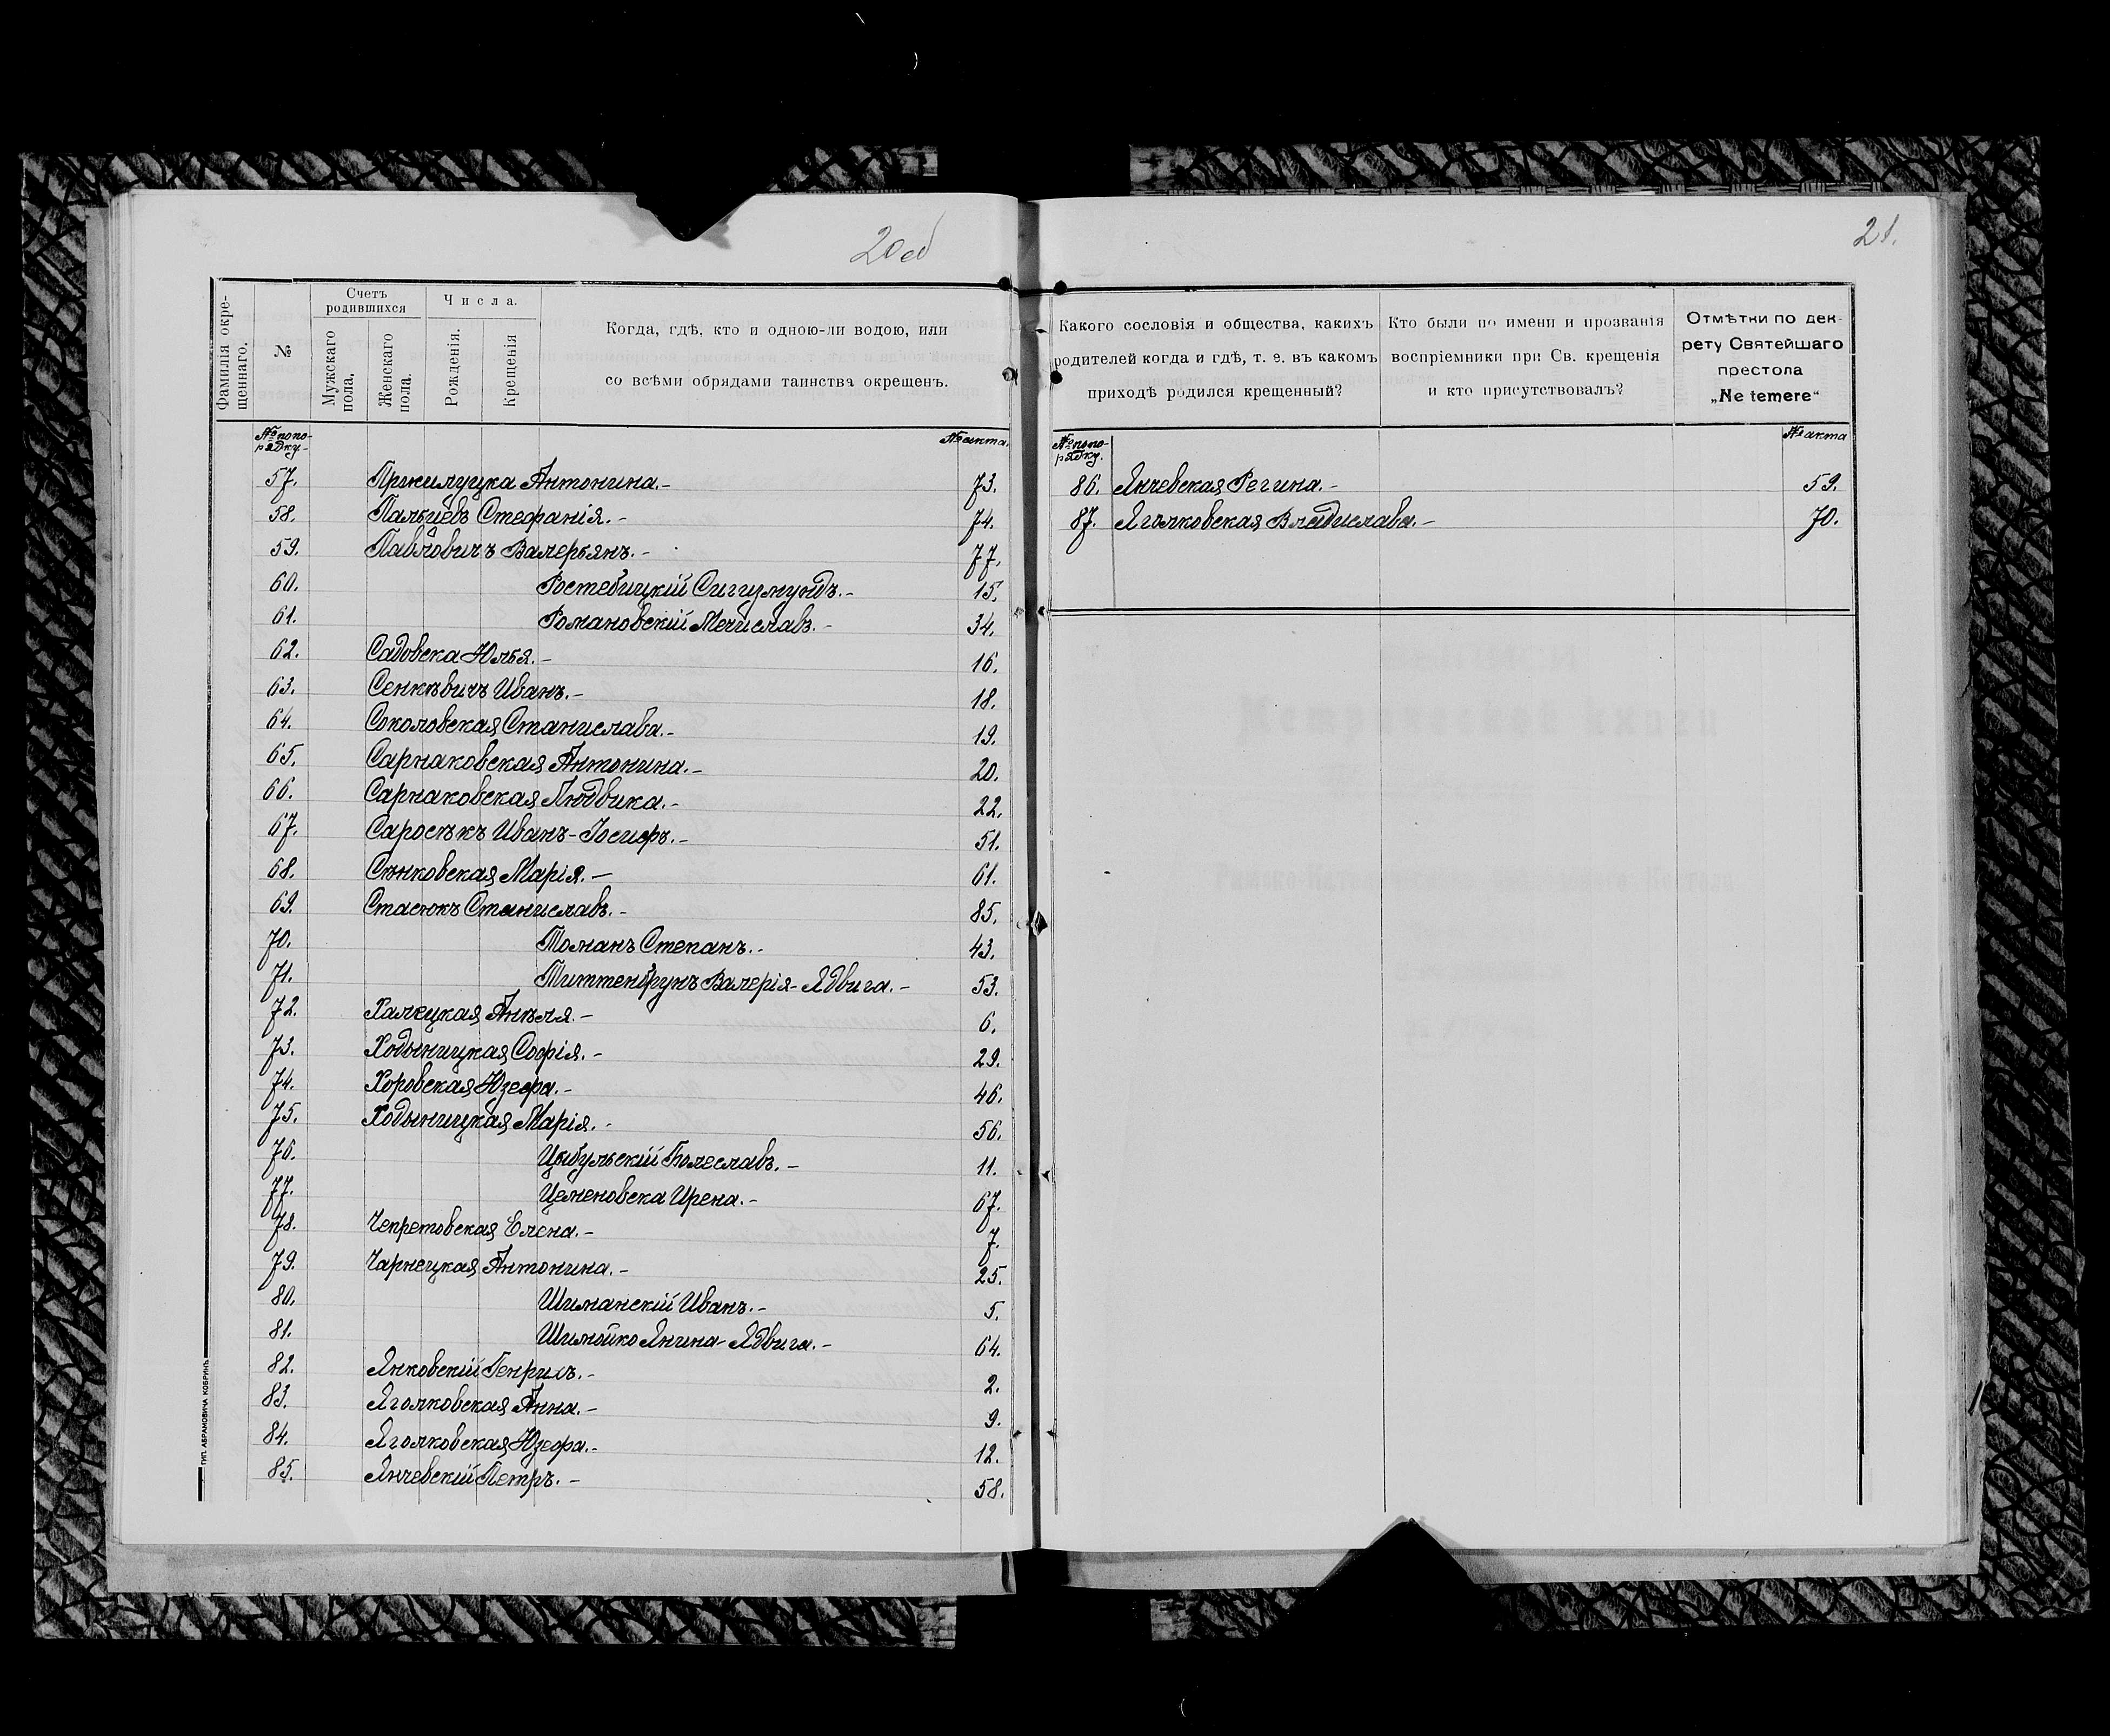 20 об
Фамилія окрещеннаго.
№
Счетъ родившихся
Мужскаго пола.
Женскаго пола.
Числа.
Рожденія.
Крещенія
Когда, гдѣ, кто и одною-ли водою, или
со всѣми обрядами таинства окрещенъ.
№ попо-
рядку.-
№ акта.
57. Пржилуцка Антонина.- 73.
58. Пальцевъ Стефанія.- 74.
59. Павловичъ Валерьянъ.- 77.
60. Ростебицкій Сигизмундъ.- 15.
61. Романовскій Мечиславъ.- 34.
62. Садовска Юлья.- 16.
63. Сенкѣвичъ Иванъ.- 18.
64. Соколовская Станислава.- 19.
65. Сарнаковская Антонина.- 20.
66. Сарнаковская Людвика.- 22.
67. Саросѣкъ Иванъ-Іосифъ.- 51.
68. Сѣнковская Марія.- 61.
69. Стасюкъ Станиславъ.- 85.
70. Томанъ Степанъ.- 43.
71. Титтенбрунъ Валерія-Ядвига.- 53.
72. Халецкая Анѣля.- 6.
73. Ходыницкая Софія.- 29.
74. Хоровская Юзефа.- 46.
75. Ходыницкая Марія.- 56.
76. Цыбульскій Болеславъ.- 11.
77. Цеменовска Ирена.- 67.
78. Чепретовская Елена.- 7.
79. Чарнецкая Антонина.- 25.
80. Шиманскій Иванъ.- 5.
81. Шимойко Янина-Ядвига.- 64.
82. Янковскій Генрихъ.- 2.
83. Яголковская Анна.- 9.
84. Яголковская Юзефа.- 12.
85. Янчевскій Петръ.- 58.
ТИП. АБРАМОВИЧА КОБРИНЪ
21.
Какого сословія и общества, какихъ
родителей когда и гдѣ, т. е. въ какомъ
приходѣ родился крещенный?
Кто были по имени и прозванія
воспріемники при Св. крещенія
и кто присутствовалъ?
Отмѣтки по дек-
рету Святейшаго
престола
„Ne temere“
№ попо-
рядку.
№ акта
86. Янчевская Регина.- 59.
87. Яголковская Владислава.- 70.